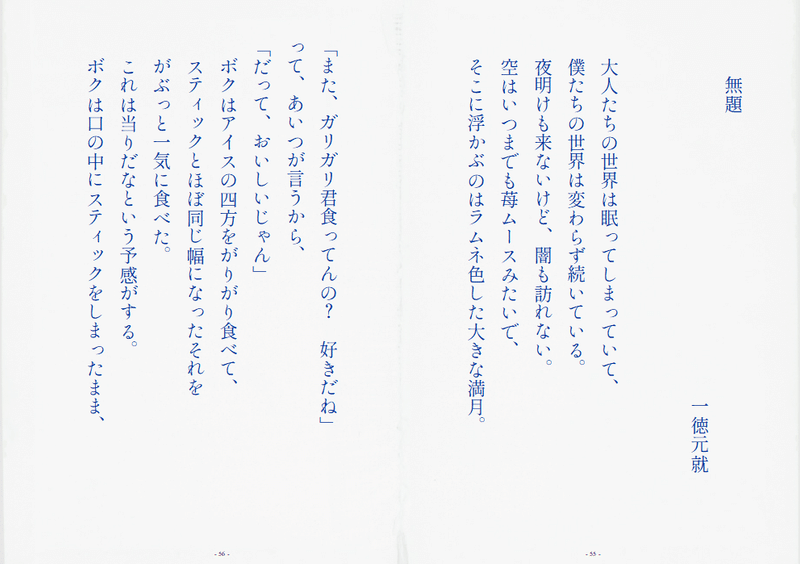 無題
一徳元就
大人たちの世界は眠ってしまっていて、
僕たちの世界は変わらず続いている。
夜明けも来ないけど、闇も訪れない。
空はいつまでも苺ムースみたいで、
そこに浮かぶのはラムネ色した大きな満月。
- 55 -
「また、ガリガリ君食ってんの？　好きだね」
って、あいつが言うから、
「だって、おいしいじゃん」
ボクはアイスの四方をがりがり食べて、
スティックとほぼ同じ幅になったそれを
がぶっと一気に食べた。
これは当りだなという予感がする。
ボクは口の中にスティックをしまったまま、
- 56 -